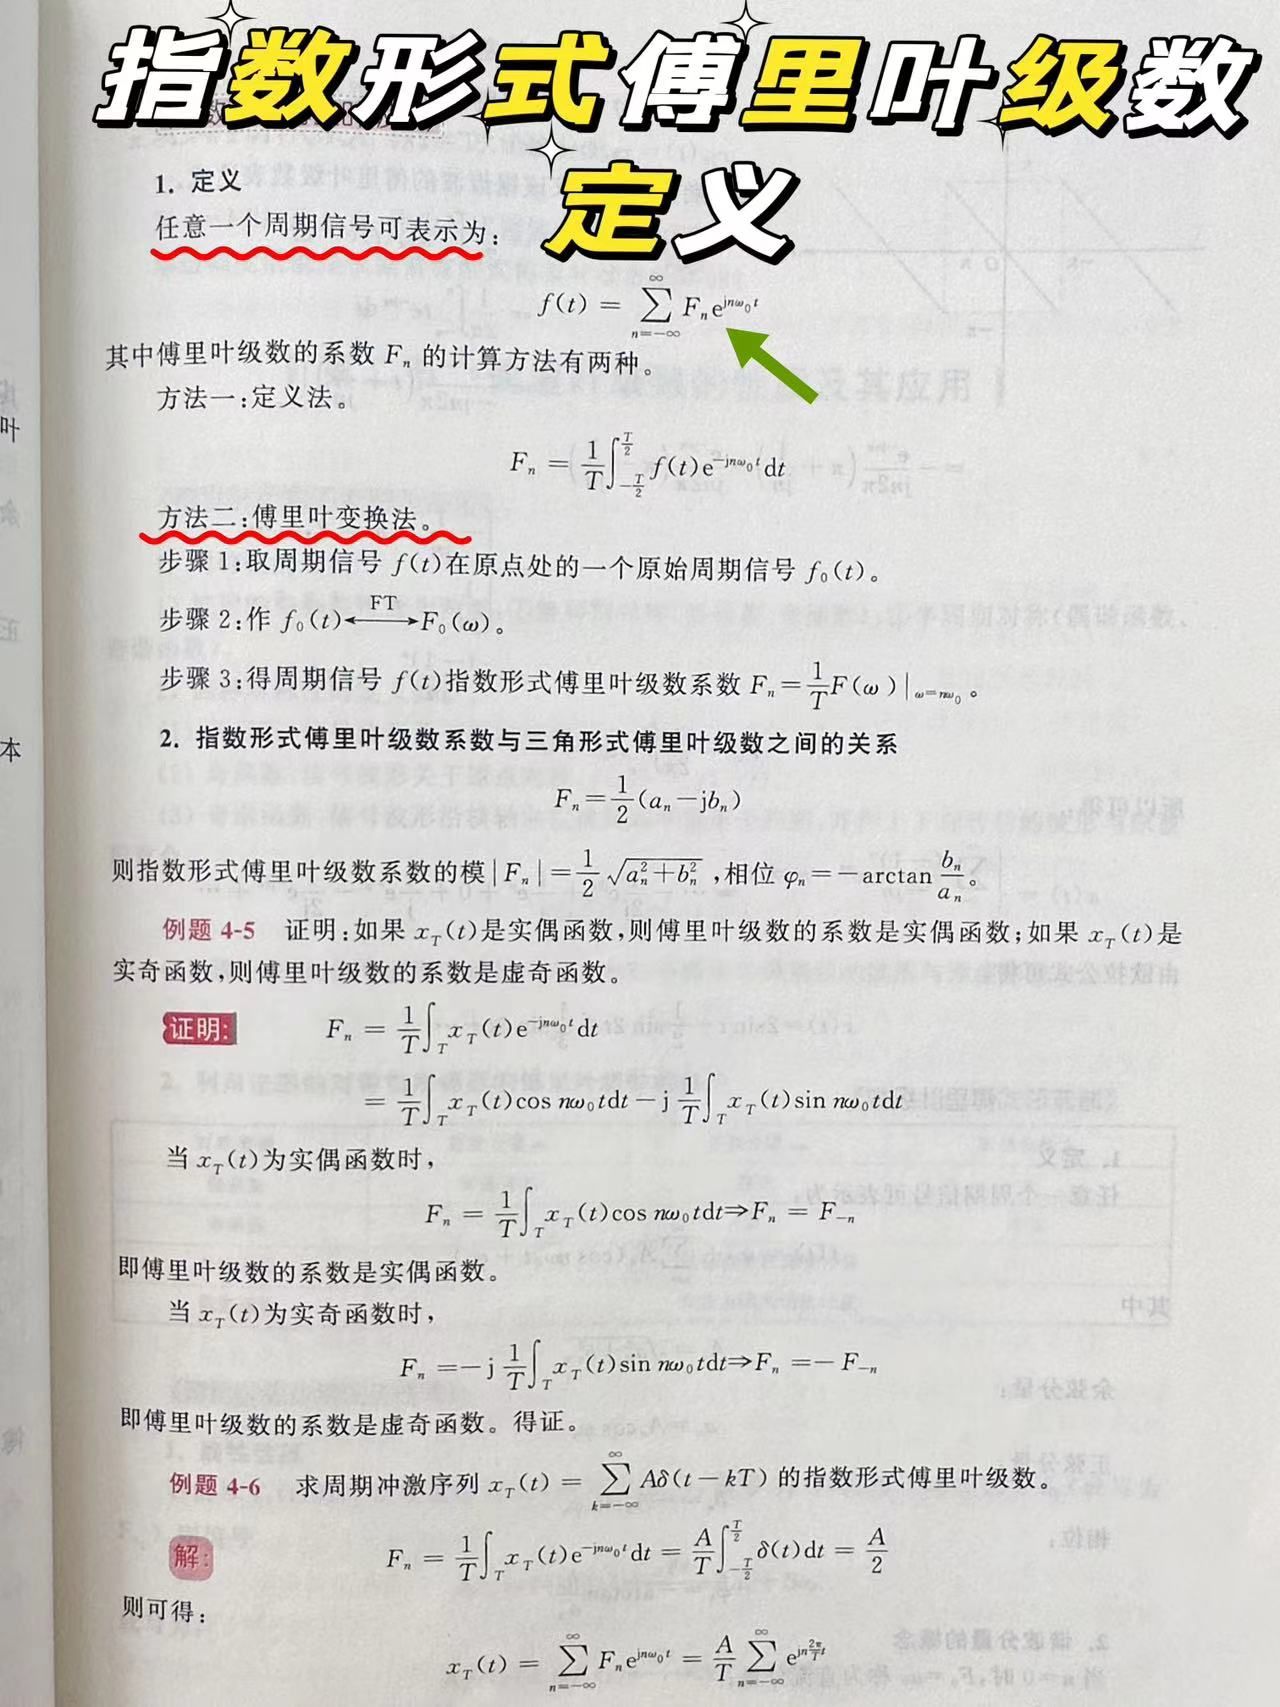 指数形式傅里叶级数
定义
1. 定义
任意一个周期信号可表示为:
f(t) = ∑_{n=-∞}^{∞} F_n e^{jnω_0 t}
其中傅里叶级数的系数 F_n 的计算方法有两种。
方法一:定义法。
F_n = \frac{1}{T}∫_{-\frac{T}{2}}^{\frac{T}{2}} f(t)e^{-jnω_0 t}dt
方法二:傅里叶变换法。
步骤 1:取周期信号 f(t)在原点处的一个原始周期信号 f_0(t)。
步骤 2:作 f_0(t) \xleftrightarrow{FT} F_0(ω)。
步骤 3:得周期信号 f(t)指数形式傅里叶级数系数 F_n=\frac{1}{T}F(ω)|_{ω=nω_0}。
2. 指数形式傅里叶级数系数与三角形式傅里叶级数之间的关系
F_n=\frac{1}{2}(a_n-jb_n)
则指数形式傅里叶级数系数的模|F_n|=\frac{1}{2}\sqrt{a_n^2+b_n^2},相位 φ_n=-arctan\frac{b_n}{a_n}。
例题 4-5 证明:如果 x_T(t)是实偶函数,则傅里叶级数的系数是实偶函数;如果 x_T(t)是
实奇函数,则傅里叶级数的系数是虚奇函数。
证明: F_n = \frac{1}{T}∫_T x_T(t)e^{-jnω_0 t}dt
= \frac{1}{T}∫_T x_T(t)cos nω_0tdt-j\frac{1}{T}∫_T x_T(t)sin nω_0tdt
当 x_T(t)为实偶函数时,
F_n = \frac{1}{T}∫_T x_T(t)cos nω_0tdt⇒F_n = F_{-n}
即傅里叶级数的系数是实偶函数。
当 x_T(t)为实奇函数时,
F_n =-j\frac{1}{T}∫_T x_T(t)sin nω_0tdt⇒F_n =-F_{-n}
即傅里叶级数的系数是虚奇函数。得证。
例题 4-6 求周期冲激序列 x_T(t) = ∑_{k=-∞}^{∞} Aδ(t-kT) 的指数形式傅里叶级数。
解: F_n = \frac{1}{T}∫_T x_T(t)e^{-jnω_0 t}dt = \frac{A}{T}∫_{-\frac{T}{2}}^{\frac{T}{2}} δ(t)dt = \frac{A}{2}
则可得:
x_T(t) = ∑_{n=-∞}^{∞} F_n e^{jnω_0 t} = \frac{A}{T}∑_{n=-∞}^{∞} e^{jn\frac{2π}{T}t}
叶
本